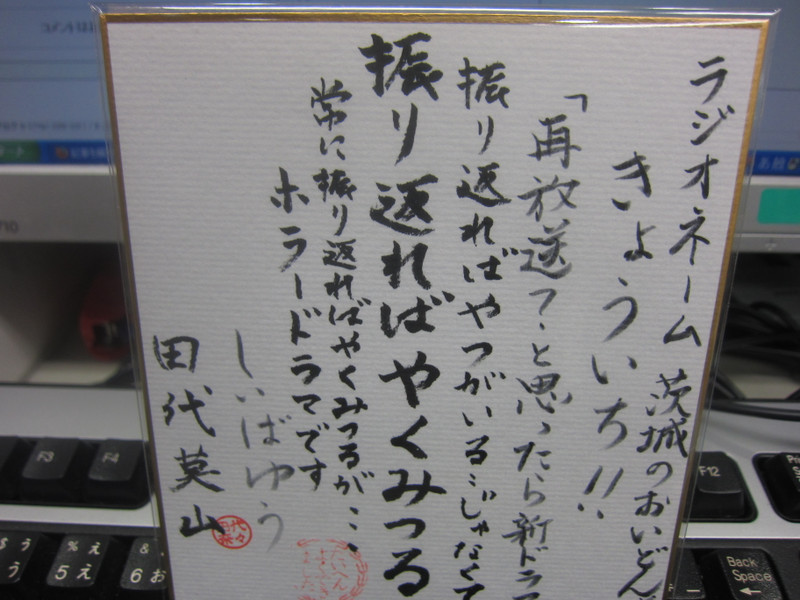 ラジオネーム 茨城のおいどん
きょういち!!
「再放送?と思ったら新ドラマ
振り返ればやつがいる…じゃなくて
振り返れば やくみつる
常に振り返ればやくみつるが…、
ホラードラマです
しいばゆう
田代英山
F3
F4
F12
Back Space
5え
6お